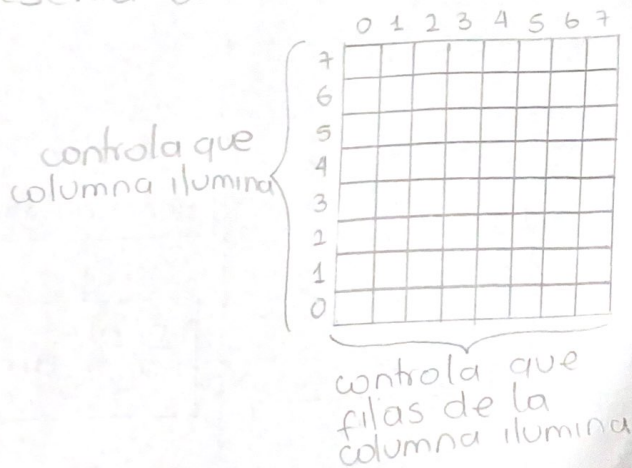 0 1 2 3 4 5 6 7
7
6
5
4
3
2
1
0
controla que
columna ilumina
controla que
filas de la
columna ilumina